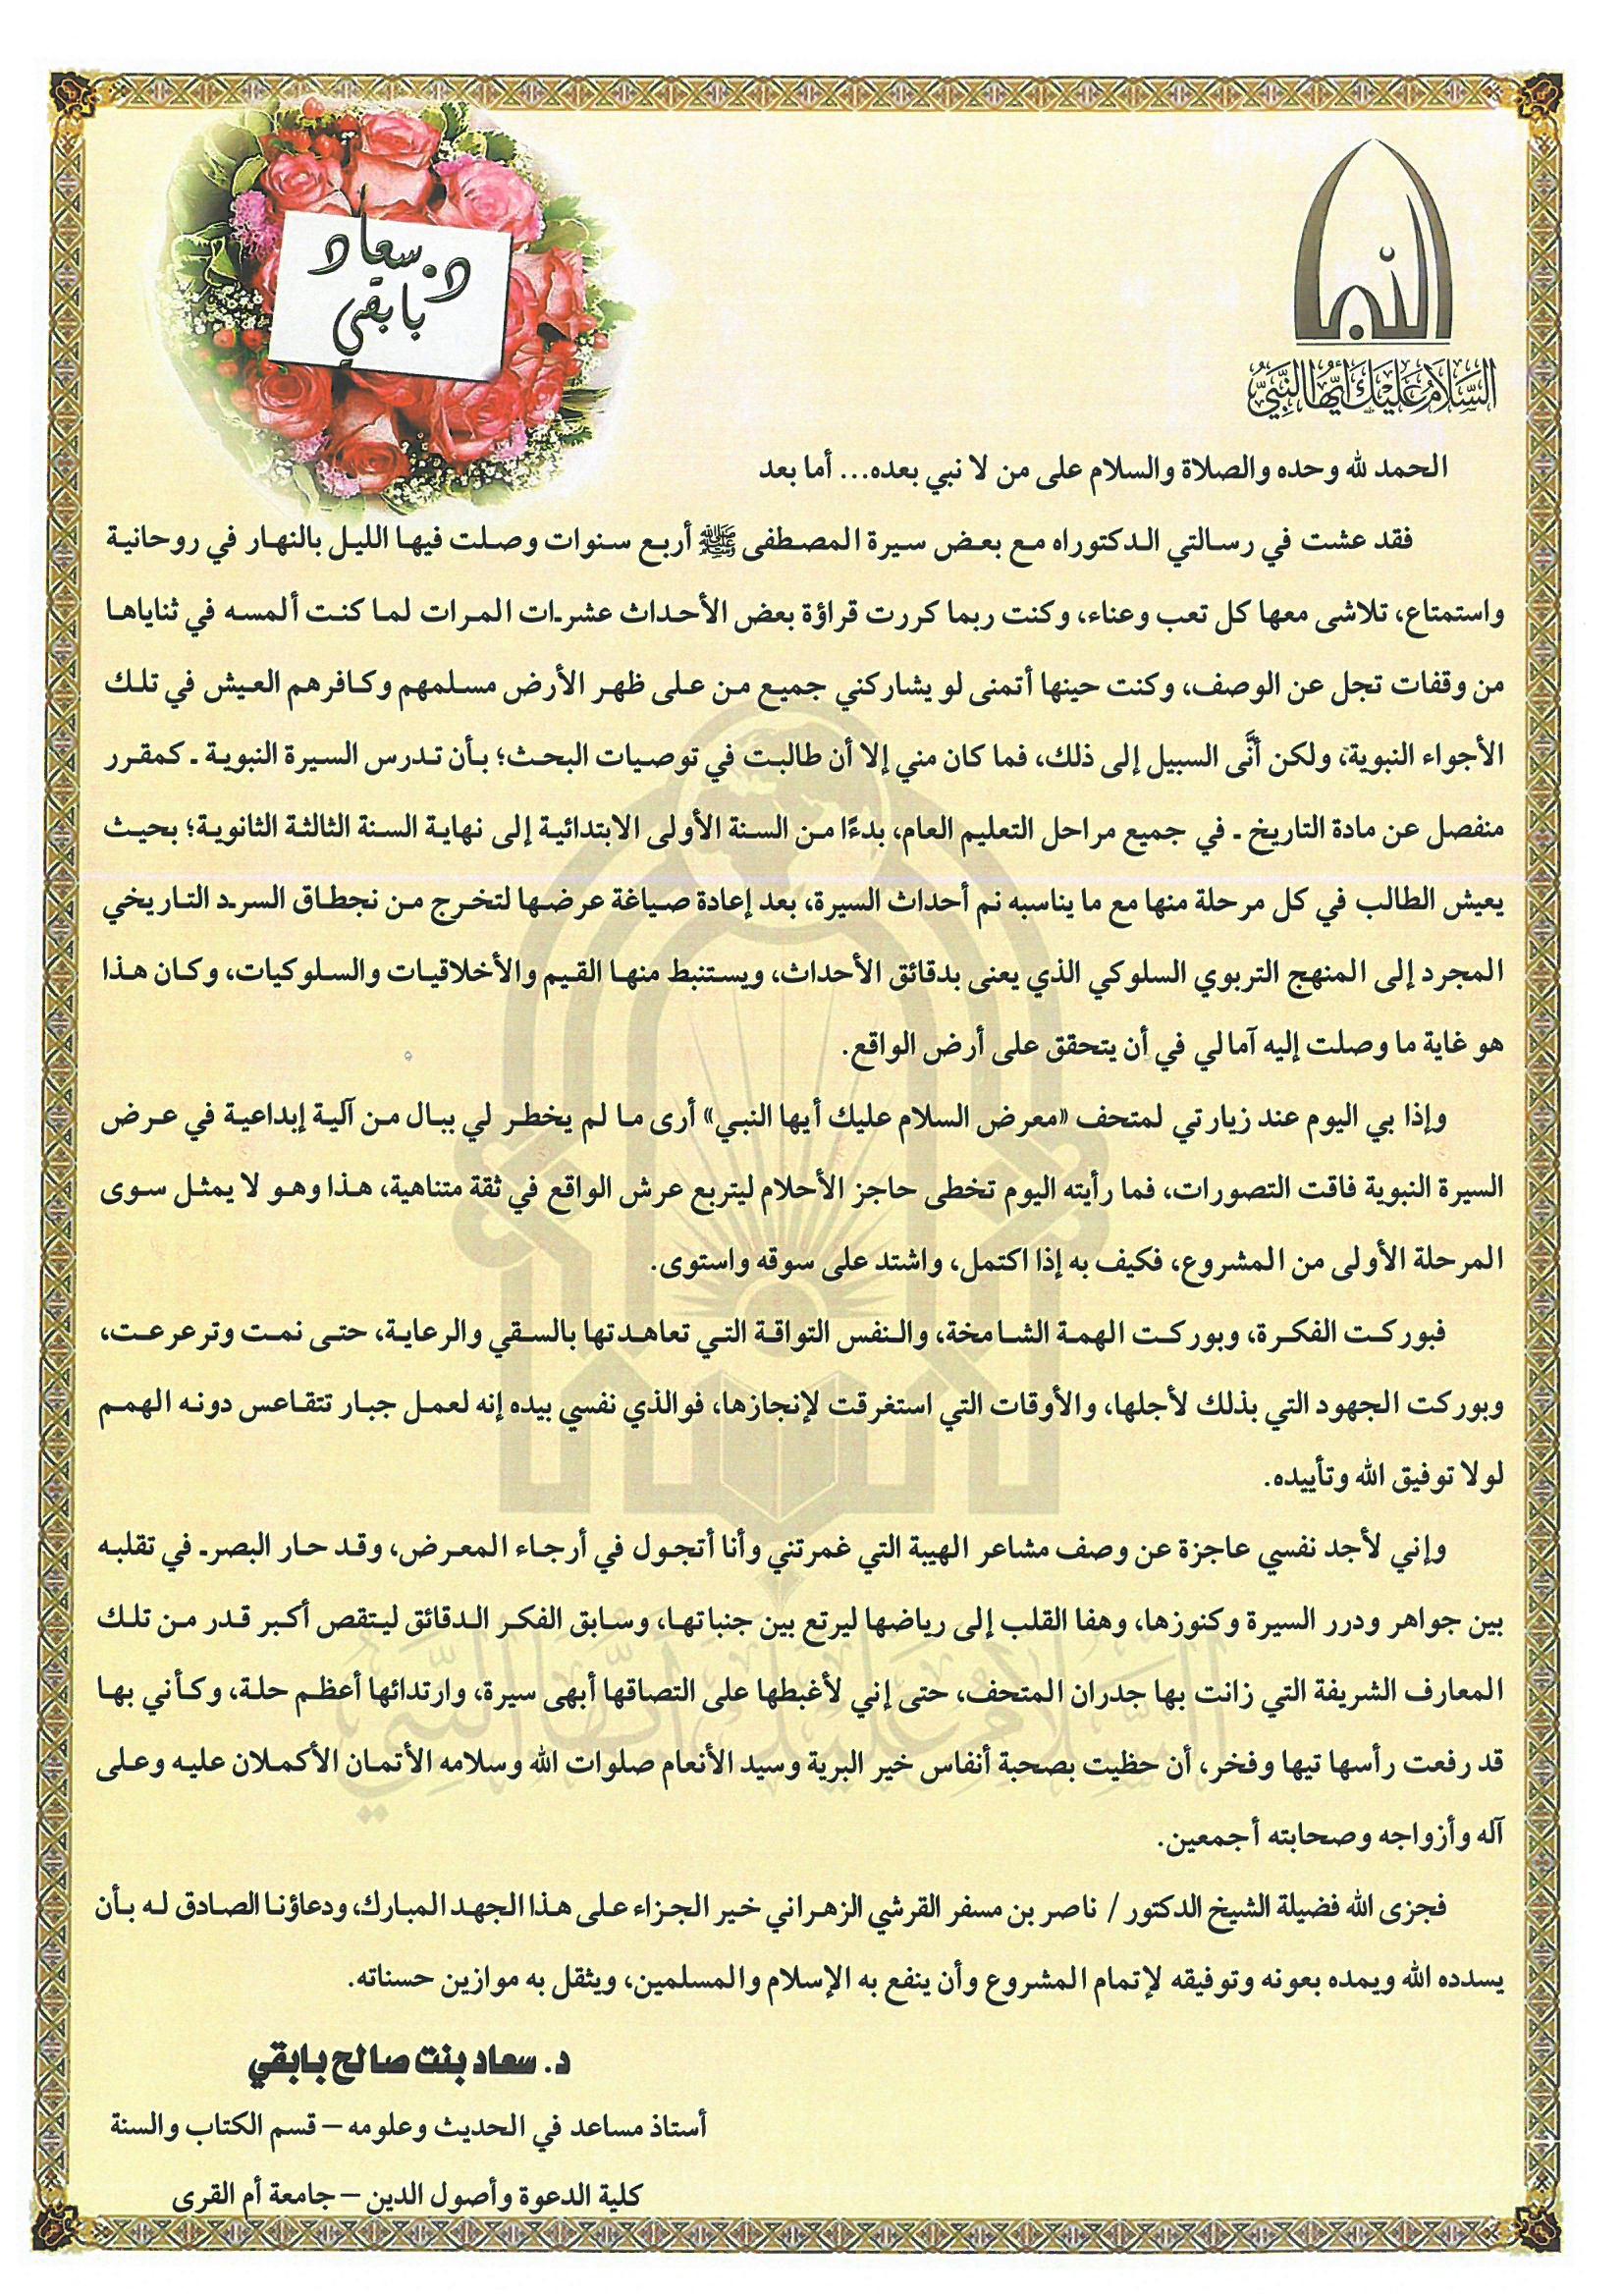 د. سعاد
بابقي
النبي
السَّلَامُ عَلَيْكَ أَيُّهَا النَّبِيُّ
الحمد لله وحده والصلاة والسلام على من لا نبي بعده... أما بعد
فقد عشت في رسالتي الدكتوراه مع بعض سيرة المصطفى ﷺ أربع سنوات وصلت فيها الليل بالنهار في روحانية
واستمتاع، تلاشى معها كل تعب وعناء، وكنت ربما كررت قراؤة بعض الأحداث عشرات المرات لما كنت ألمسه في ثناياها
من وقفات تجل عن الوصف، وكنت حينها أتمنى لو يشاركني جميع من على ظهر الأرض مسلمهم وكافرهم العيش في تلك
الأجواء النبوية، ولكن أنَّى السبيل إلى ذلك، فما كان مني إلا أن طالبت في توصيات البحث؛ بأن تدرس السيرة النبوية ـ كمقرر
منفصل عن مادة التاريخ ـ في جميع مراحل التعليم العام، بدءًا من السنة الأولى الابتدائية إلى نهاية السنة الثالثة الثانوية؛ بحيث
يعيش الطالب في كل مرحلة منها مع ما يناسبه نم أحداث السيرة، بعد إعادة صياغة عرضها لتخرج من نجطاق السرد التاريخي
المجرد إلى المنهج التربوي السلوكي الذي يعنى بدقائق الأحداث، ويستنبط منها القيم والأخلاقيات والسلوكيات، وكان هذا
هو غاية ما وصلت إليه آمالي في أن يتحقق على أرض الواقع.
وإذا بي اليوم عند زيارتي لمتحف «معرض السلام عليك أيها النبي» أرى ما لم يخطر لي ببال من آلية إبداعية في عرض
السيرة النبوية فاقت التصورات، فما رأيته اليوم تخطى حاجز الأحلام ليتربع عرش الواقع في ثقة متناهية، هذا وهو لا يمثل سوى
المرحلة الأولى من المشروع، فكيف به إذا اكتمل، واشتد على سوقه واستوى.
فبوركت الفكرة، وبوركت الهمة الشامخة، والنفس التواقة التي تعاهدتها بالسقي والرعاية، حتى نمت وترعرعت،
وبوركت الجهود التي بذلك لأجلها، والأوقات التي استغرقت لإنجازها، فوالذي نفسي بيده إنه لعمل جبار تتقاعس دونه الهمم
لولا توفيق الله وتأييده.
وإني لأجد نفسي عاجزة عن وصف مشاعر الهيبة التي غمرتني وأنا أتجول في أرجاء المعرض، وقد حار البصر في تقلبه
بين جواهر ودرر السيرة وكنوزها، وهفا القلب إلى رياضها ليرتع بين جنباتها، وسابق الفكر الدقائق ليتقص أكبر قدر من تلك
المعارف الشريفة التي زانت بها جدران المتحف، حتى إني لأغبطها على التصاقها أبهى سيرة، وارتدائها أعظم حلة، وكأني بها
قد رفعت رأسها تيها وفخر، أن حظيت بصحبة أنفاس خير البرية وسيد الأنعام صلوات الله وسلامه الأتمان الأكملان عليه وعلى
آله وأزواجه وصحابته أجمعين.
فجزى الله فضيلة الشيخ الدكتور / ناصر بن مسفر القرشي الزهراني خير الجزاء على هذا الجهد المبارك، ودعاؤنا الصادق له بأن
يسدده الله ويمده بعونه وتوفيقه لإتمام المشروع وأن ينفع به الإسلام والمسلمين، ويثقل به موازين حسناته.
د. سعاد بنت صالح بابقي
أستاذ مساعد في الحديث وعلومه – قسم الكتاب والسنة
كلية الدعوة وأصول الدين – جامعة أم القرى